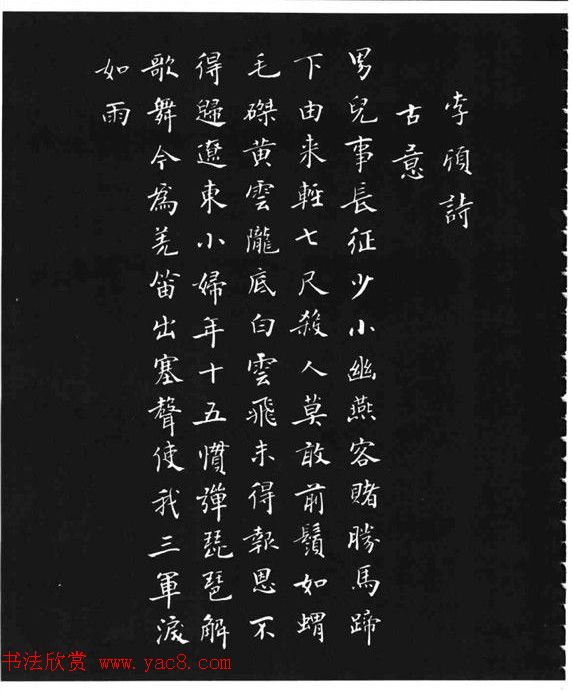 李頎詩
古意
男兒事長征少小幽燕客賭勝馬蹄
下由来輕七尺殺人莫敢前鬚如蝟
毛磔黃雲隴底白雲飛未得報恩不
得歸遼東小婦年十五慣彈琵琶解
歌舞今為羌笛出塞聲使我三軍淚
如雨
书法欣赏 www.yac8.com